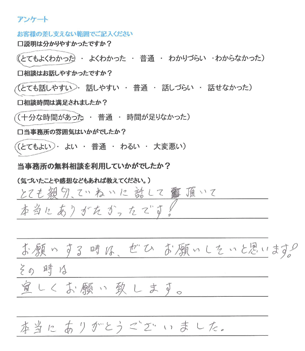 アンケート
お客様の差し支えない範囲でご記入ください
□説明は分かりやすかったですか？
（とてもよくわかった ・ よくわかった ・ 普通 ・ わかりづらい ・わからなかった）
□相談はお話しやすかったですか？
（とても話しやすい ・ 話しやすい ・ 普通 ・ 話しづらい ・ 話せなかった）
□相談時間は満足されましたか？
（十分な時間があった ・ 普通 ・ 時間が足りなかった）
□当事務所の雰囲気はいかがでしたか？
（とてもよい ・ よい ・ 普通 ・ わるい ・ 大変悪い）
当事務所の無料相談を利用していかがでしたか？
（気づいたことや感想などもあれば教えてください。）
とても親切、ていねいに話して頂いて
本当にありがたかったです！
お願いする時は、ぜひお願いしたいと思います！
その時は
宜しくお願い致します。
本当にありがとうございました。